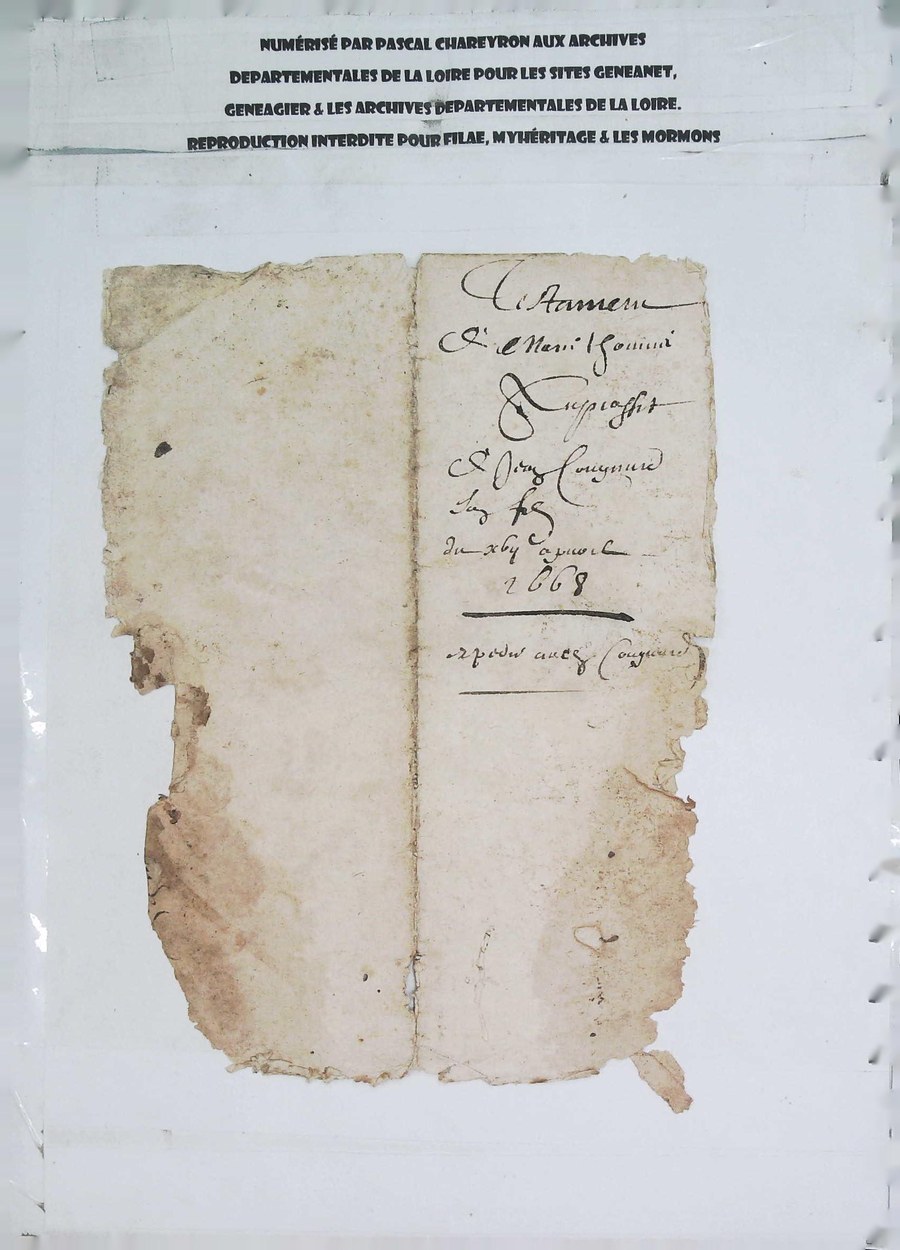 NUMÉRISÉ PAR PASCAL CHAREYRON AUX ARCHIVES
DEPARTEMENTALES DE LA LOIRE POUR LES SITES GENEANET,
GENEAGIER & LES ARCHIVES DEPARTEMENTALES DE LA LOIRE.
REPRODUCTION INTERDITE POUR FILAE, MYHÉRITAGE & LES MORMONS
Testament
de
de Jean Cougnard
son filz
du xbj apvril
1668
expedie avec Cougnard